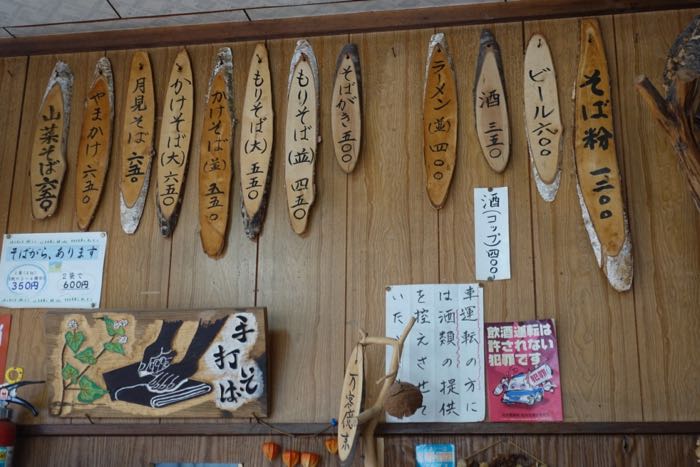 そば粉 一三〇〇
ビール 六〇〇
酒 三五〇
ラーメン(並)四〇〇
そばがき 五〇〇
もりそば(並)四五〇
もりそば(大)五五〇
かけそば(並)五五〇
かけそば(大)六五〇
月見そば 六五〇
やまかけ 六五〇
山菜そば 六五〇
酒(コップ)四〇〇
そばがら、あります
350円
2袋で
600円
手打
そば
車運転の方に
は酒類の提供
を控えさせて
いた
飲酒運転は
許されない
犯罪です
犯罪!